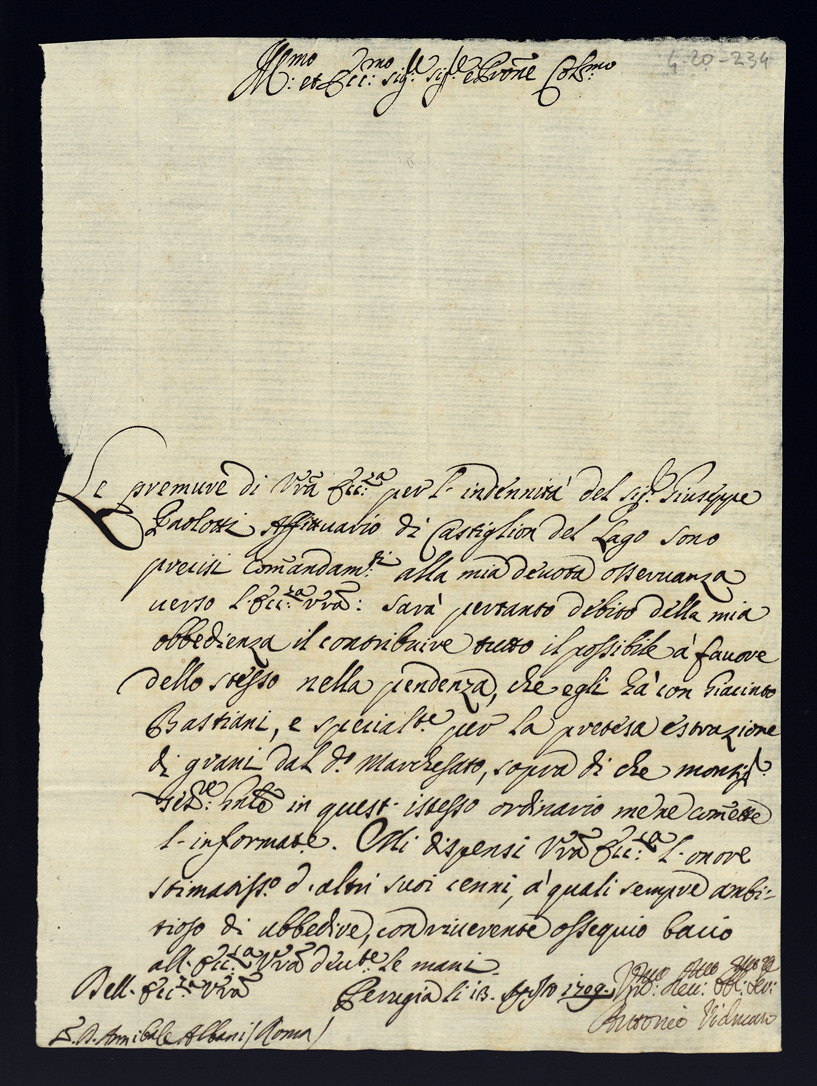 Ill.mo et Ecc.mo Sig.re Sig.re e Pron̄e Col.mo
4-20-234
Le premure di Vrā Ecc.za per l'indennità del Sig.r Giuseppe
Paolotti Affittuario di Castiglion del Lago sono
precisi comandam.ti alla mia devota osservanza
verso l'Ecc.za Vrā: sarà pertanto debito della mia
obbedienza il contribuire tutto il possibile à favore
dello stesso nella pendenza, che egli hà con Giacinto
Bastiani, e special.te per la pretesa estrazione
di grani dal d.o Marchesato, sopra di che monsig.r
in quest'istesso ordinario me ne com̄ette
l'informat.e. Mi dispensi Vrā Ecc.za l'onore
stimatiss.o d'altri suoi cenni, à quali sempre ambi-
tioso di ubbedire, con riverente ossequio bacio
all'Ecc.za Vrā devot.te le mani
Dell'Ecc.za Vrā
Perugia li 13 Agosto 1709
Antonio Vidman
S. D. Annibale Albani (Roma)